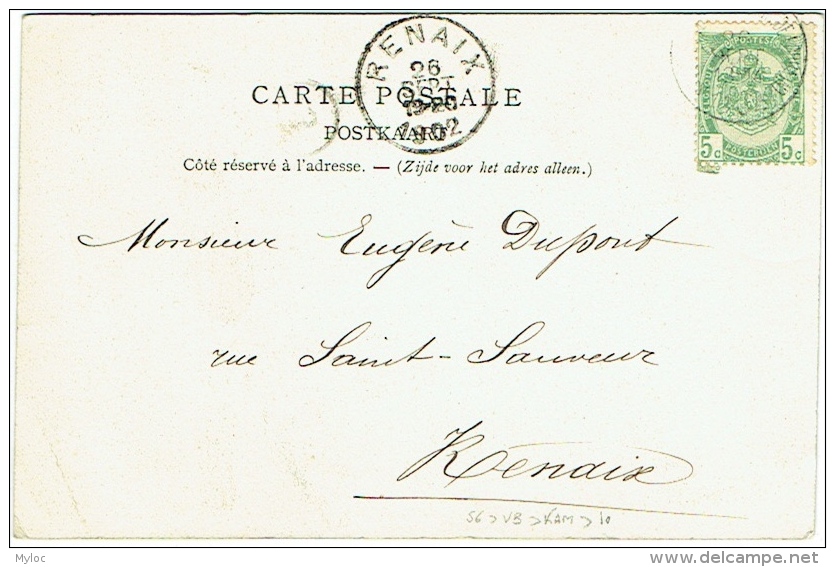 RENAIX
26
SEPT
1902
CARTE POSTALE
POSTKAART
Côté réservé à l'adresse. — (Zijde voor het adres alleen.)
POSTES
POSTERIJEN
5c 5c
Monsieur Eugène Dupont
rue Saint-Sauveur
Renaix
S6 > VB > KAM > 10
Myloc
delcampe.net